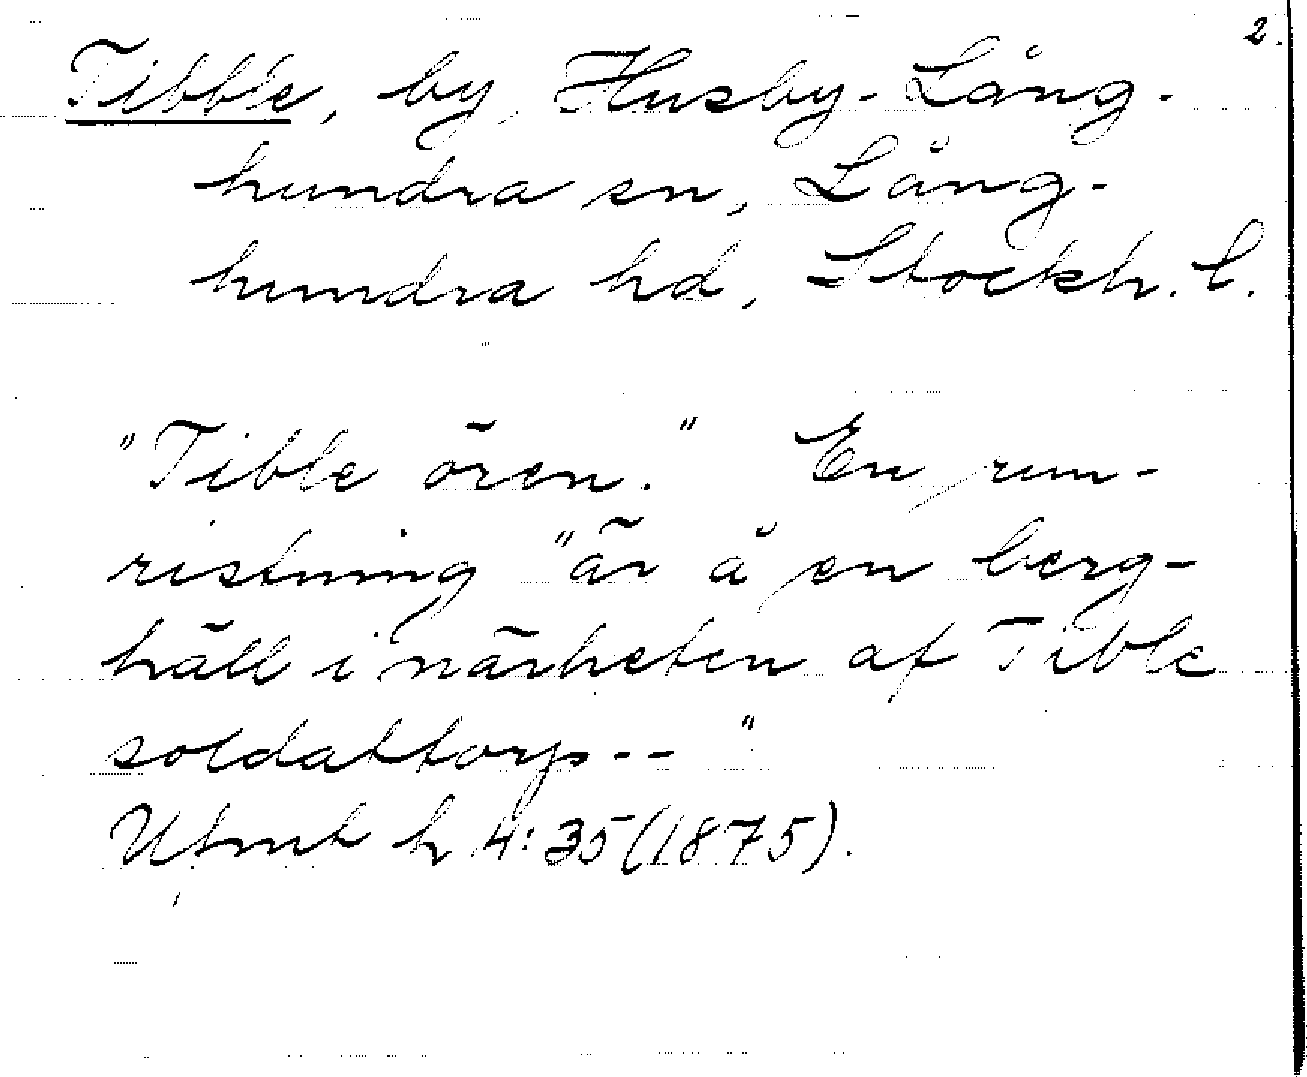 2.
Tibble, by, Husby-Lång-
hundra sn, Lång-
hundra hd, Stockh. l.
"Tible ören." En run-
ristning "är å en berg-
häll i närheten af Tible
soldattorp--"
Ufmt h 4:35 (1875).